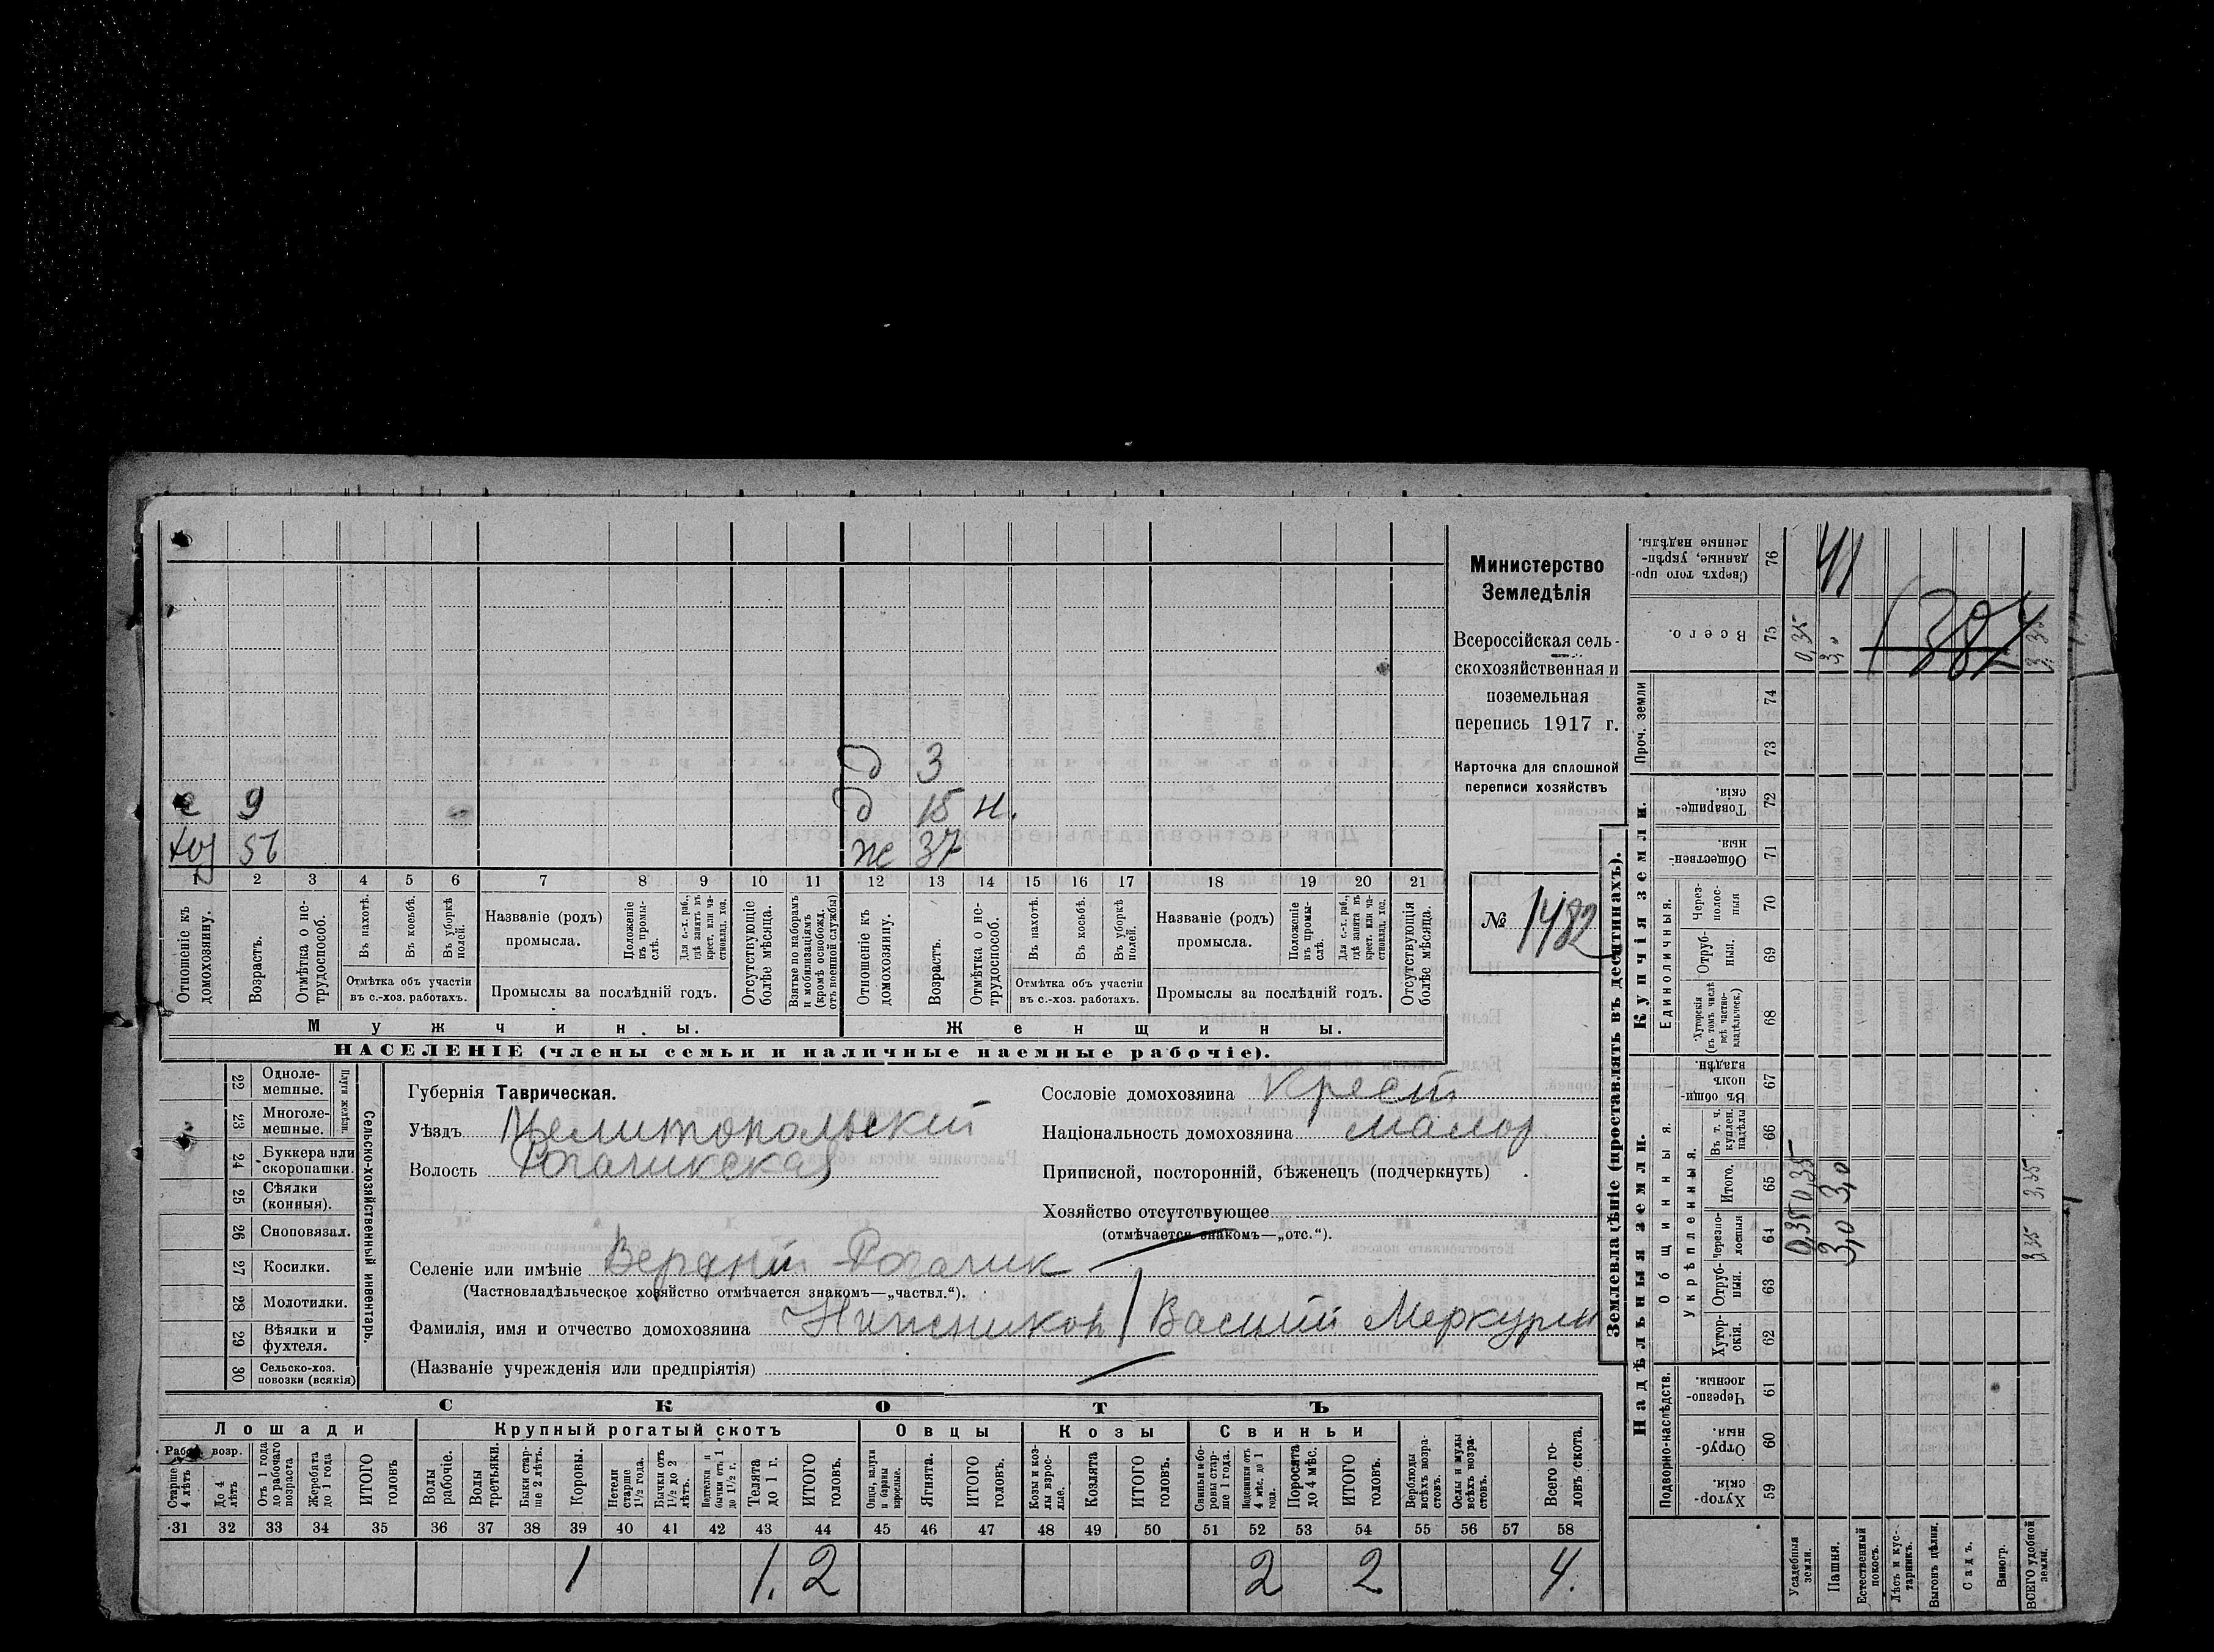 Министерство
Земледѣлія
Всероссійская сель-
скохозяйственная и
поземельная
перепись 1917 г.
Карточка для сплошной
переписи хозяйствъ
№ 1482
д 3
с 9 д 15 н.
хоз 56 ж 37
1 2 3 4 5 6 7 8 9 10 11 12 13 14 15 16 17 18 19 20 21
Отношеніе къ домохозяину.
Возрастъ.
Отмѣтка о не-трудоспособ.
Въ пахотѣ.
Въ косьбѣ.
Въ уборкѣ полей.
Отмѣтка объ участіи
въ с.-хоз. работахъ.
Названіе (родъ)
промысла.
Положеніе въ промы-слѣ.
Для с.-х. раб., гдѣ занятъ въ крест. или ча-стновлад. хоз.
Промыслы за послѣдній годъ.
Отсутствующіе болѣе мѣсяца.
Взятые по наборамъ и мобилизаціямъ (кромѣ освобожд. отъ военной службы)
Отношеніе къ домохозяину.
Возрастъ.
Отмѣтка о не-трудоспособ.
Въ пахотѣ.
Въ косьбѣ.
Въ уборкѣ полей.
Отмѣтка объ участіи
въ с.-хоз. работахъ.
Названіе (родъ)
промысла.
Положеніе въ промы-слѣ.
Для с.-х. раб., гдѣ занятъ въ крест. или ча-стновлад. хоз.
Промыслы за послѣдній годъ.
Отсутствующія болѣе мѣсяца.
Мужчины. Женщины.
НАСЕЛЕНІЕ (члены семьи и наличные наемные рабочіе).
22 Одноле-мешные.
23 Многоле-мешные.
Плуги желѣзн.
24 Буккера или скоропашки.
25 Сѣялки (конныя).
26 Сноповязал.
27 Косилки.
28 Молотилки.
29 Вѣялки и фухтеля.
30 Сельско-хоз. повозки (всякія)
Сельско-хозяйственный инвентарь.
Губернія Таврическая.
Уѣздъ Мелитопольскій
Волость Рогачикская
Сословіе домохозяина Крест
Національность домохозяина малор
Приписной, посторонній, бѣженецъ (подчеркнуть)
Хозяйство отсутствующее
(отмѣчается знакомъ—„отс.“).
Селеніе или имѣніе Верхній Рогачик
(Частновладѣльческое хозяйство отмѣчается знакомъ—„частвл.“).
Фамилія, имя и отчество домохозяина Василій Меркурі
(Названіе учрежденія или предпріятія)
СКОТЪ
Лошади Крупный рогатый скотъ Овцы Козы Свиньи
Рабоч. возр.
Старше 4 лѣтъ
До 4 лѣтъ
Отъ 1 года до рабочаго возраста
Жеребята до 1 года
ИТОГО головъ
Волы рабочіе.
Волы третьяки.
Быки стар-ше 2 лѣтъ.
Коровы.
Нетели старше 1½ года.
Бычки отъ 1½ до 2 лѣтъ.
Нетелки и бычки отъ 1 до 1½ г.
Телята до 1 г.
ИТОГО головъ.
Овцы, валухи и бараны взрослые.
Ягнята.
ИТОГО головъ.
Козы и коз-лы взрос-лые.
Козлята
ИТОГО головъ.
Свиньи и бо-ровы стар-ше 1 года.
Подсвинки отъ 4 мѣс. до 1 года.
Поросята до 4 мѣс.
ИТОГО головъ.
Верблюды всѣхъ возра-стовъ.
Ослы и мулы всѣхъ возра-стовъ.
Всего го-ловъ скота.
31 32 33 34 35 36 37 38 39 40 41 42 43 44 45 46 47 48 49 50 51 52 53 54 55 56 57 58
1 1. 2 2 2 4.
Землевладѣніе (проставлять въ десятинахъ).
Надѣльныя земли. Купчія земли. Проч. земли
Подворно-наслѣдств.
Общинныя.
Укрѣпленныя.
Единоличныя.
Хутор-скія. 59
Отруб-ныя. 60
Черезпо-лосныя. 61
Хутор-скія. 62
Отруб-ныя. 63
Черезпо-лосныя 64
Итого. 65
Въ т. ч. куплен. надѣлы 66
Въ общи-номъ владѣн. 67
Хуторскія (въ томъ числѣ всѣ частно-владѣльческ.) 68
Отруб-ныя. 69
Через-полос-ныя 70
Обществен-ныя. 71
Товарище-скія. 72
73
74
Всего. 75
Сверхъ того про-данные, укрѣп-ленные надѣлы. 76
Усадебныя земли. 0,35 0,35 0,35
Пашня. 3,0 3,0 3,0 41
Естественный покосъ.
Лѣсъ и кус-тарникъ.
Выгонъ цѣлин.
Садъ.
Виногр.
ВСЕГО удобной земли. 3,35 3,35 3,35